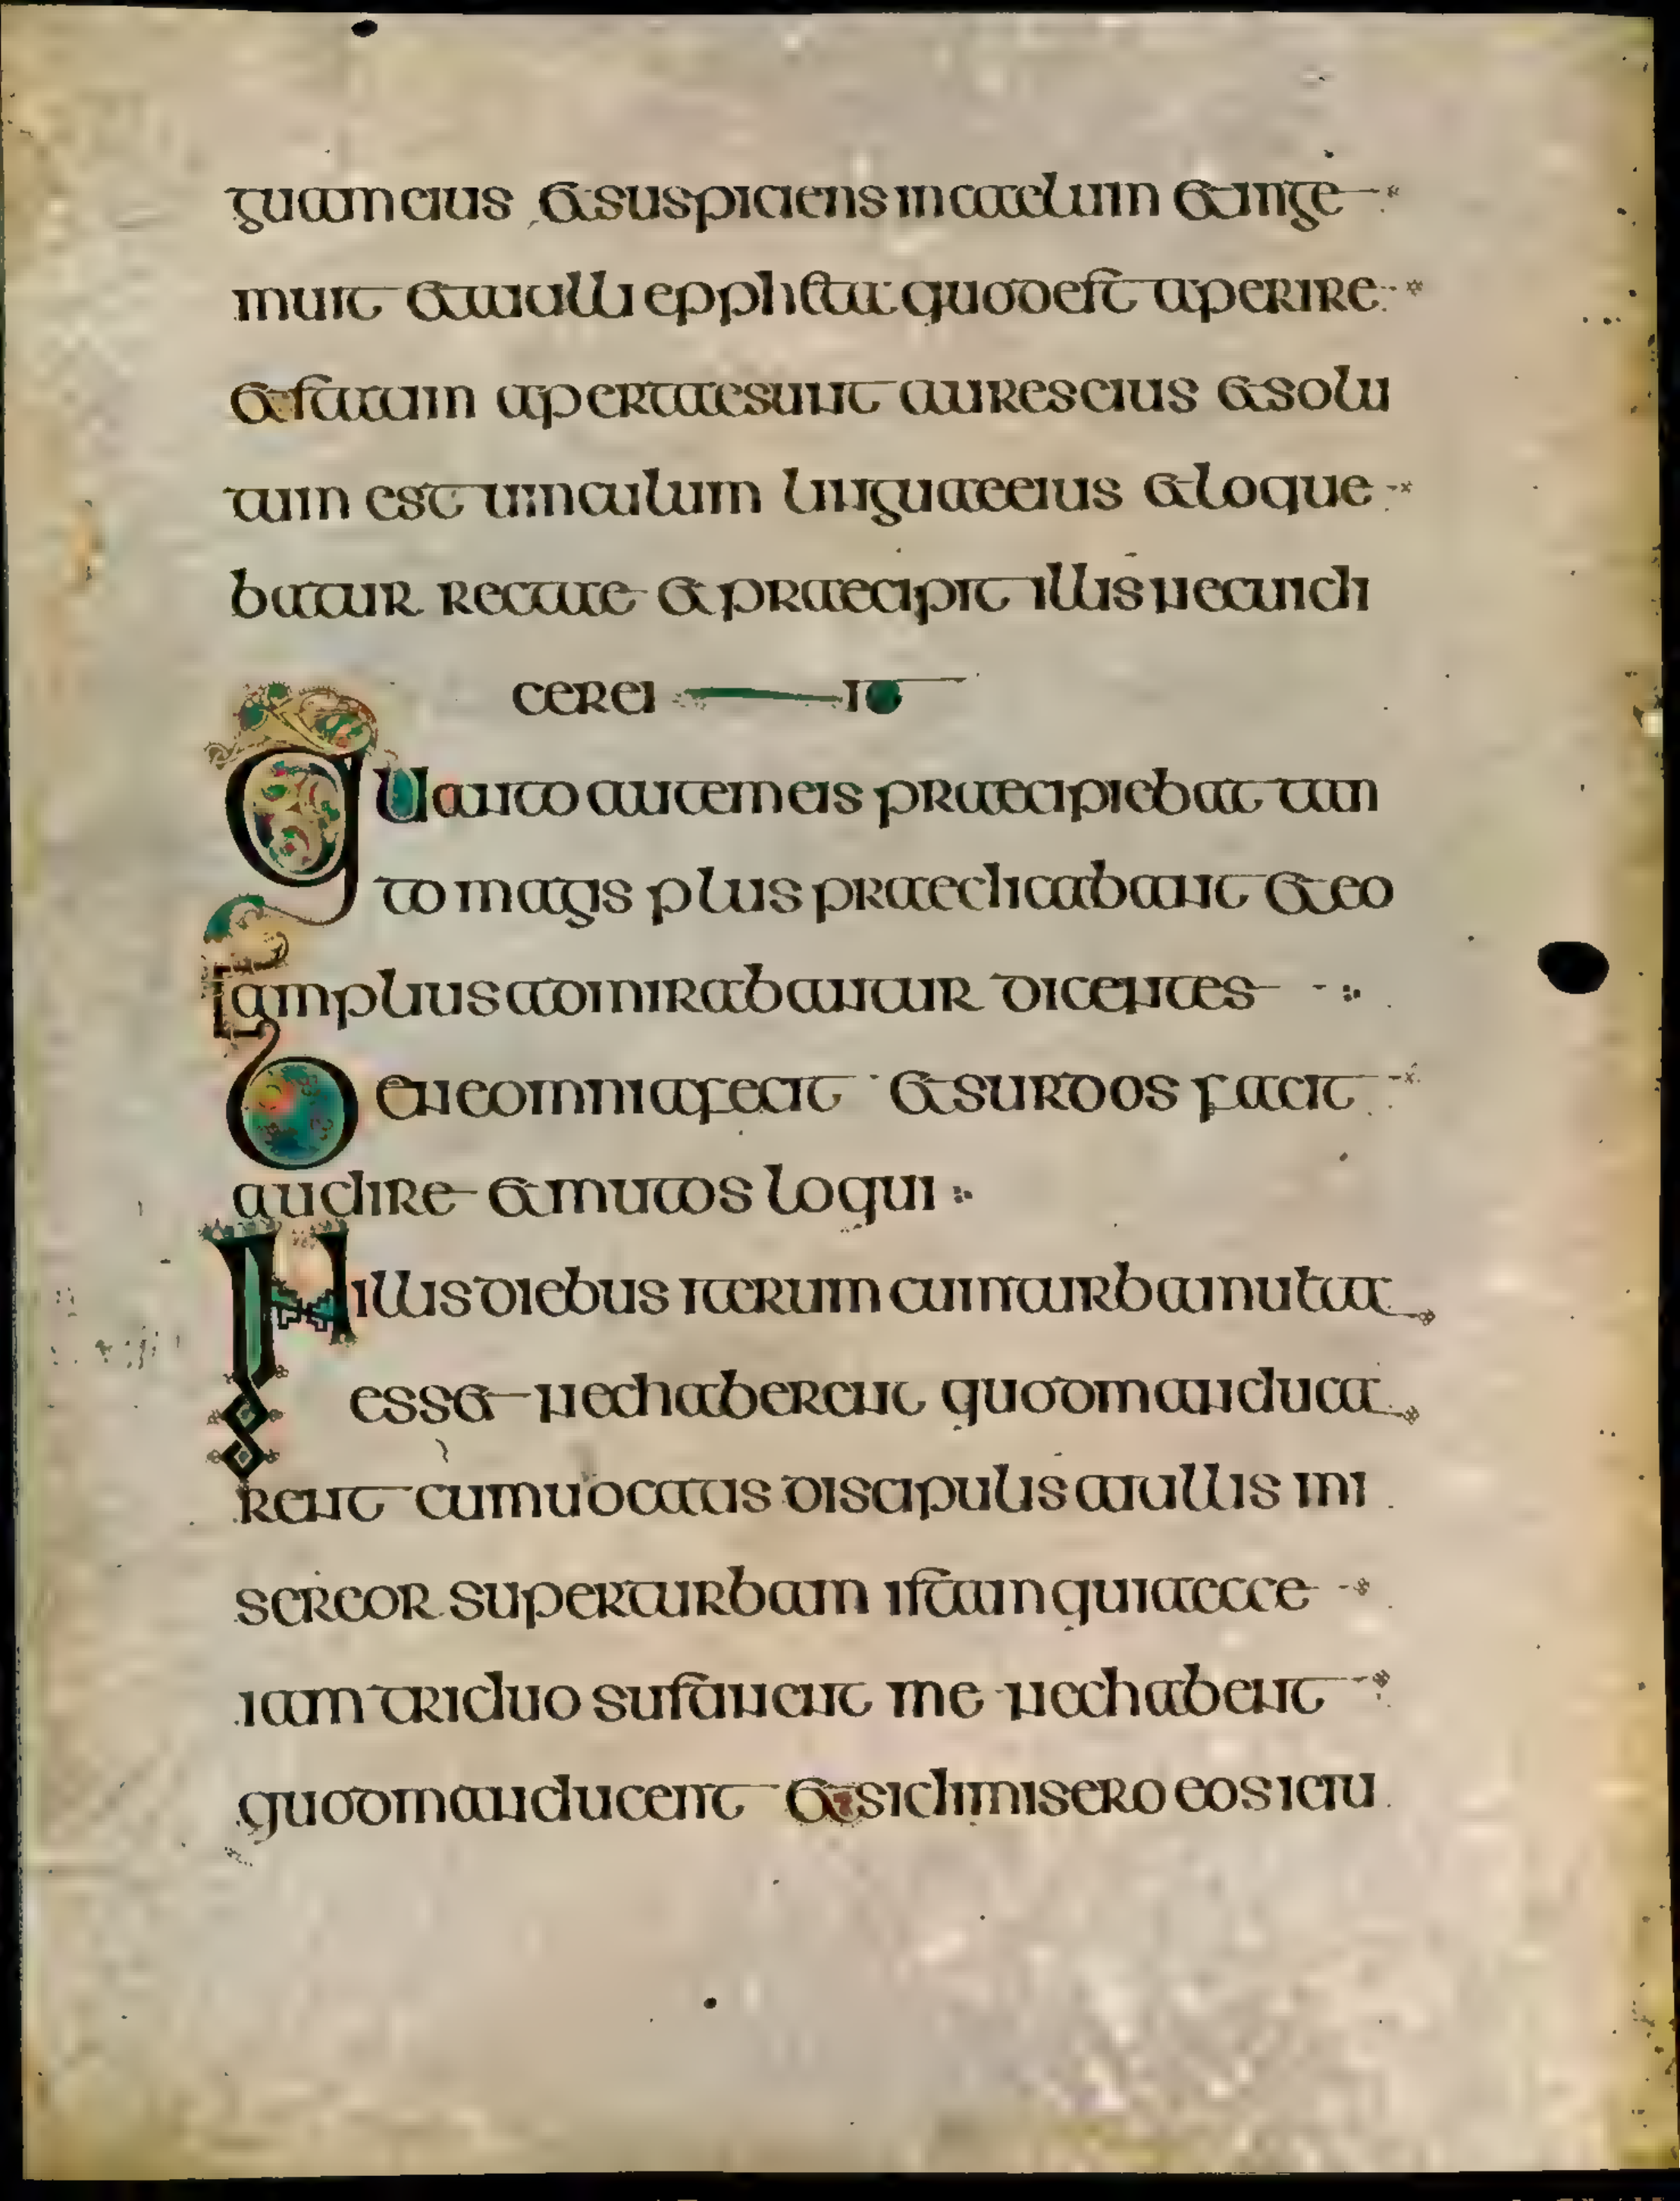 guam eius & suspiciens in caelum & inge
muit & ait illi eppheta quod est aperire
& statim apertae sunt aures eius & solu
tum est uinculum linguae eius & loque
batur recte & praecipit illis ne cui di
cerent
Quanto autem eis praecipiebat tan
to magis plus praedicabant & eo
amplius admirabantur dicentes
Bene omnia fecit & surdos facit
audire & mutos loqui
IN illis diebus iterum cum turba multa
ess& nec haberent quod manduca
rent cumuocatis discipulis ait illis mi
sereor super turbam istam quia ecce
iam triduo sustinent me nec habent
quod manducent & si dimisero eos ieiu